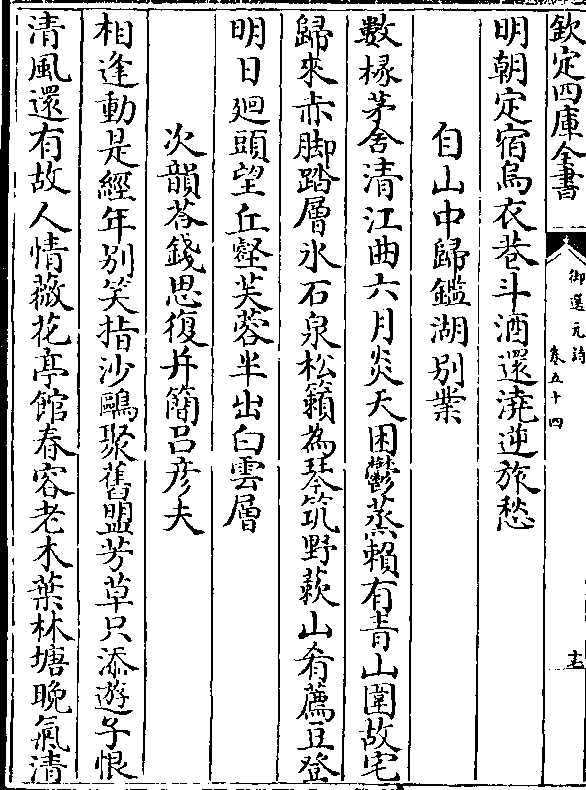 欽定四庫全書
御選元詩
卷五十四
十三
明朝定宿烏衣巷斗酒還澆逆旅愁
自山中歸鑑湖別業
數椽茅舍清江曲六月炎天困鬱蒸賴有青山圍故宅
歸來赤脚踏層氷石泉松籟為琴筑野蔌山肴薦豆登
明日廻頭望丘壑芙蓉半出白雲層
次韻荅錢思復并簡呂彦夫
相逢動是經年別笑指沙鷗聚舊盟芳草只添遊子恨
清風還有故人情薇花亭館春容老木葉林塘晚氣清